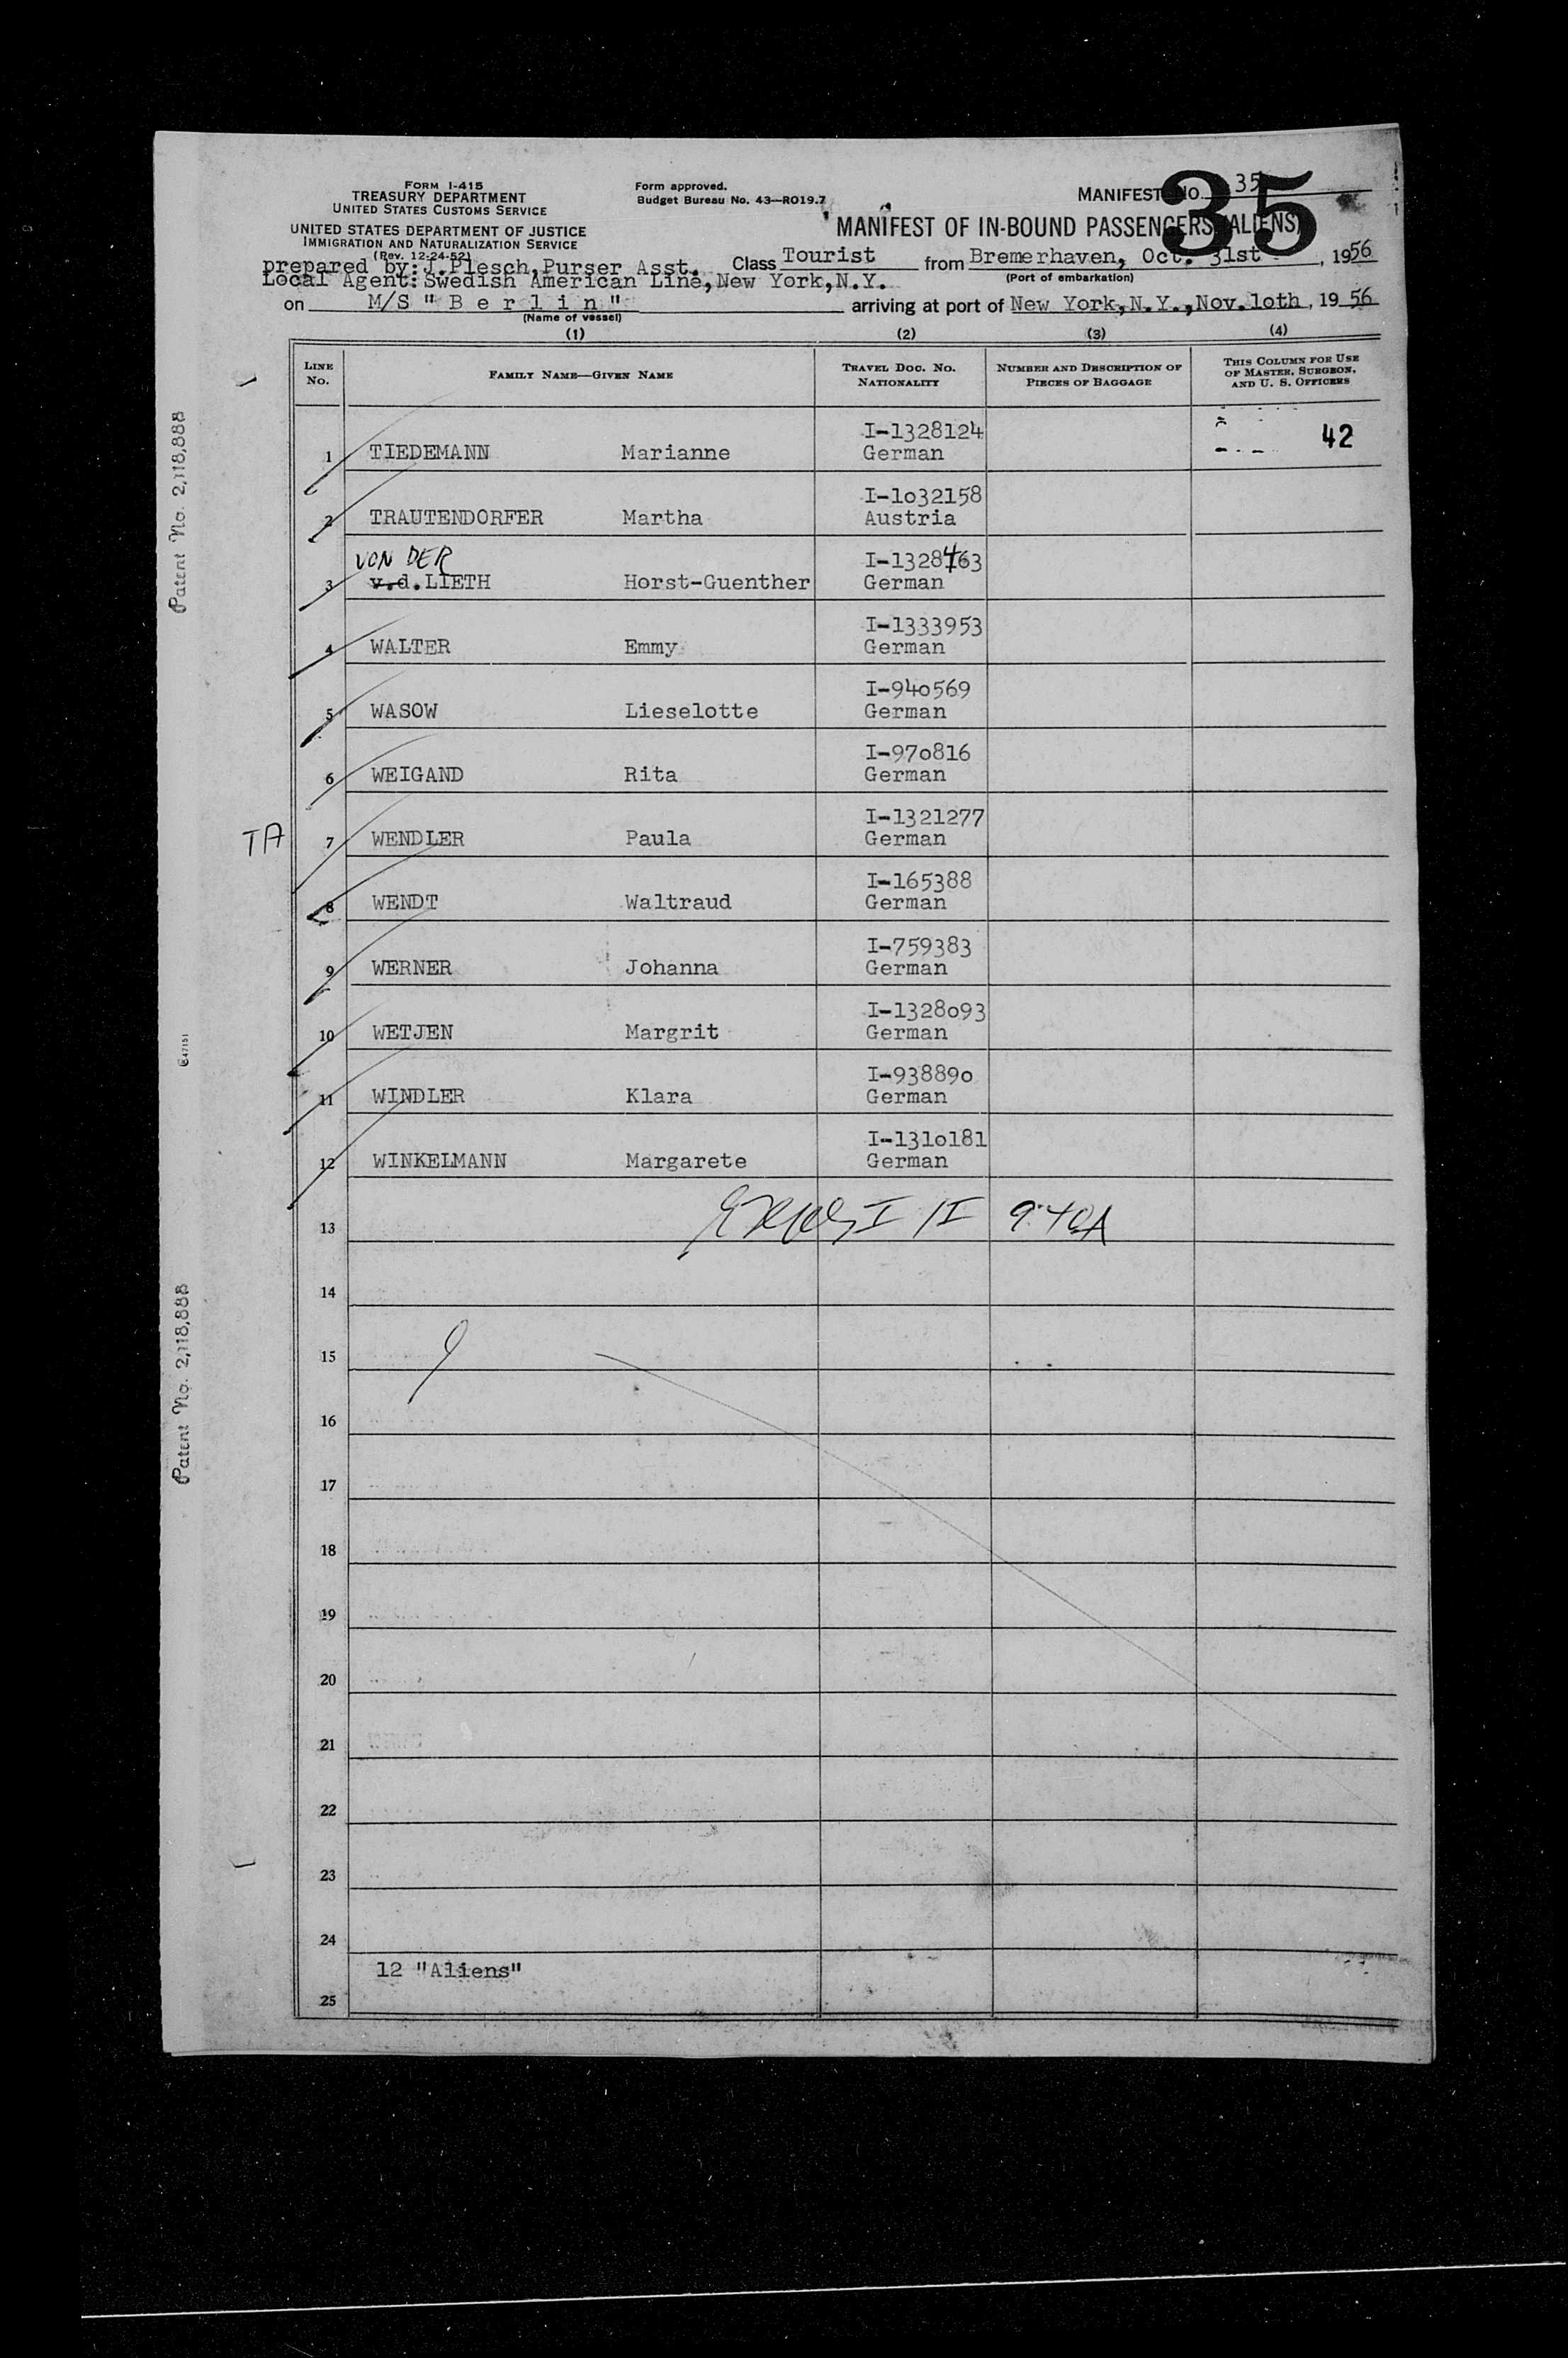 FORM I-415
TREASURY DEPARTMENT
UNITED STATES CUSTOMS SERVICE
UNITED STATES DEPARTMENT OF JUSTICE
IMMIGRATION AND NATURALIZATION SERVICE
(Rev. 12-24-52)
Form approved.
Budget Bureau No. 43—RO19.7
MANIFEST NO. 35
35
MANIFEST OF IN-BOUND PASSENGERS (ALIENS)
prepared by: J.Plesch,Purser Asst. Class Tourist from Bremerhaven, Oct. 31st , 1956
(Port of embarkation)
Local Agent: Swedish American Line,New York,N.Y.
on M/S "B e r l i n" arriving at port of New York,N.Y.,Nov.loth, 19 56
(Name of vessel)
(1) (2) (3) (4)
LINE No. FAMILY NAME—GIVEN NAME TRAVEL DOC. NO. NATIONALITY NUMBER AND DESCRIPTION OF PIECES OF BAGGAGE THIS COLUMN FOR USE OF MASTER, SURGEON, AND U. S. OFFICERS
I-1328124 42
1 TIEDEMANN Marianne German
I-1o32158
2 TRAUTENDORFER Martha Austria
VON DER I-1328463
3 v.d.LIETH Horst-Guenther German
I-1333953
4 WALTER Emmy German
I-94o569
5 WASOW Lieselotte German
I-97o816
6 WEIGAND Rita German
I-1321277
TA 7 WENDLER Paula German
I-165388
8 WENDT Waltraud German
I-759383
9 WERNER Johanna German
I-1328o93
10 WETJEN Margrit German
I-93889o
11 WINDLER Klara German
I-131o181
12 WINKELMANN Margarete German
13
14
15
16
17
18
19
20
21
22
23
24
12 "Aliens"
25
Patent No. 2,118,888
Patent No. 2,118,888